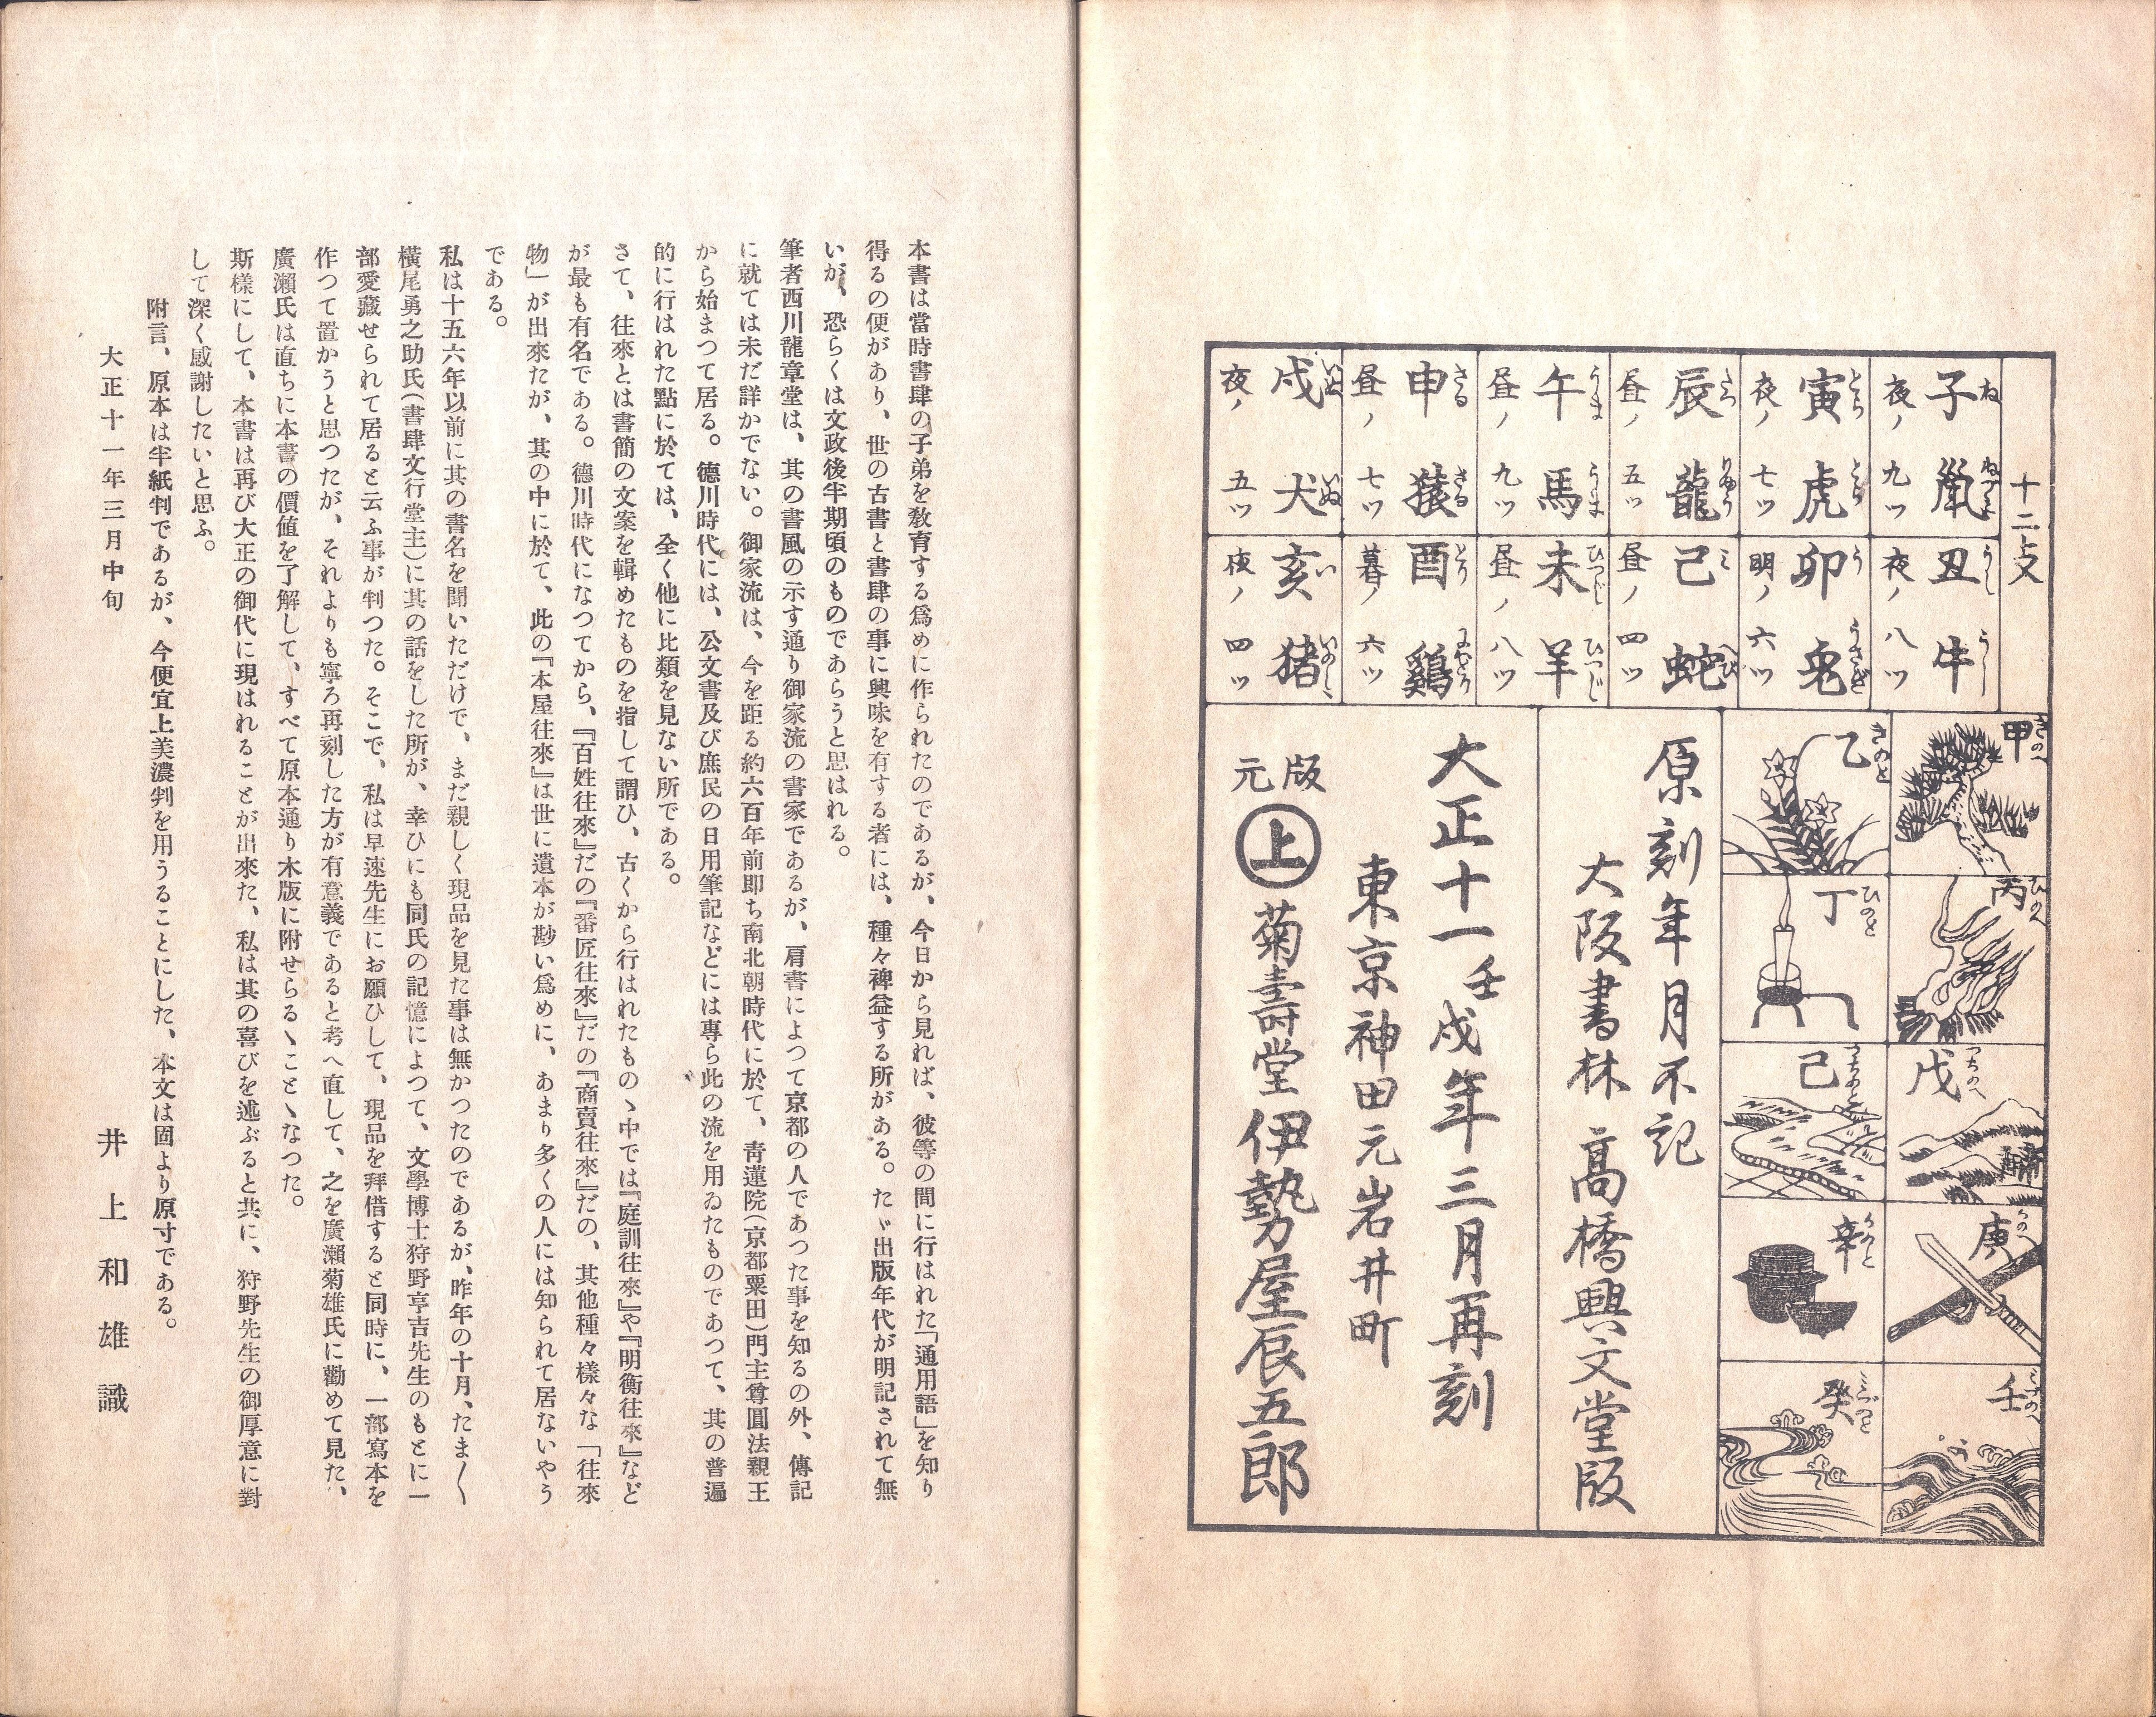 十二支
子 ね 鼠 ねずみ
夜ノ 九ツ
丑 うし 牛 うし
夜ノ 八ツ
寅 とら 虎 とら
夜ノ 七ツ
卯 う 兎 うさぎ
明ノ 六ツ
辰 たつ 龍 りやう
昼ノ 五ツ
巳 み 蛇 へび
昼ノ 四ツ
午 うま 馬 うま
昼ノ 九ツ
未 ひつじ 羊 ひつじ
昼ノ 八ツ
申 さる 猿 さる
昼ノ 七ツ
酉 とり 鷄 にわとり
暮ノ 六ツ
戌 いぬ 犬 いぬ
夜ノ 五ツ
亥 い 猪 いのしゝ
夜ノ 四ツ
甲 きのへ
乙 きのと
丙 ひのへ
丁 ひのと
戊 つちのへ
己 つちのと
庚 かのへ
辛 かのと
壬 みづのへ
癸 みづのと
原刻年月不記
大阪書林 高橋興文堂版
大正十一壬戌年三月再刻
東京神田元岩井町
版元 上 菊壽堂伊勢屋辰五郎
本書は當時書肆の子弟を敎育する爲めに作られたのであるが、今日から見れば、彼等の間に行はれた「通用語」を知り
得るの便があり、世の古書と書肆の事に興味を有する者には、種々裨益する所がある。たゞ出版年代が明記されて無
いが、恐らくは文政後半期頃のものであらうと思はれる。
筆者西川龍章堂は、其の書風の示す通り御家流の書家であるが、肩書によつて京都の人であつた事を知るの外、傳記
に就ては未だ詳かでない。御家流は、今を距る約六百年前即ち南北朝時代に於て、靑蓮院(京都粟田)門主尊圓法親王
から始まつて居る。德川時代には、公文書及び庶民の日用筆記などには專ら此の流を用ゐたものであつて、其の普遍
的に行はれた點に於ては、全く他に比類を見ない所である。
さて、往來とは書簡の文案を輯めたものを指して謂ひ、古くから行はれたものゝ中では『庭訓往來』や『明衡往來』など
が最も有名である。德川時代になつてから、『百姓往來』だの『番匠往來』だの『商賣往來』だの、其他種々樣々な「往來
物」が出來たが、其の中に於て、此の『本屋往來』は世に遺本が尠い爲めに、あまり多くの人には知られて居ないやう
である。
私は十五六年以前に其の書名を聞いただけで、まだ親しく現品を見た事は無かつたのであるが、昨年の十月、たま〱
橫尾勇之助氏(書肆文行堂主)に其の話をした所が、幸ひにも同氏の記憶によつて、文學博士狩野亨吉先生のもとに一
部愛藏せられて居ると云ふ事が判つた。そこで、私は早速先生にお願ひして、現品を拜借すると同時に、一部寫本を
作つて置かうと思つたが、それよりも寧ろ再刻した方が有意義であると考へ直して、之を廣瀨菊雄氏に勸めて見た、
廣瀨氏は直ちに本書の價値を了解して、すべて原本通り木版に附せらるゝことゝなつた。
斯樣にして、本書は再び大正の御代に現はれることが出來た、私は其の喜びを述ぶると共に、狩野先生の御厚意に對
して深く感謝したいと思ふ。
附言、原本は半紙判であるが、今便宜上美濃判を用うることにした、本文は固より原寸である。
大正十一年三月中旬
井上和雄識